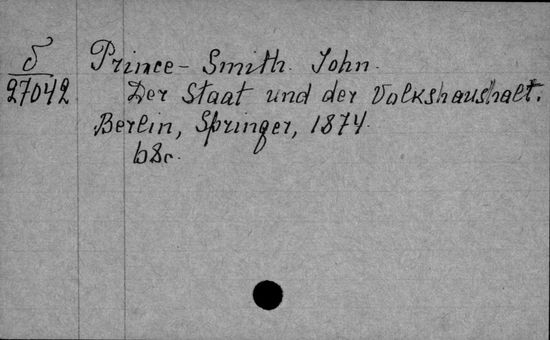 б
27042
Prince-Smith. John.
Der Staat und der Volkshaushalt.
Berlin, Springer, 1874.
68c.